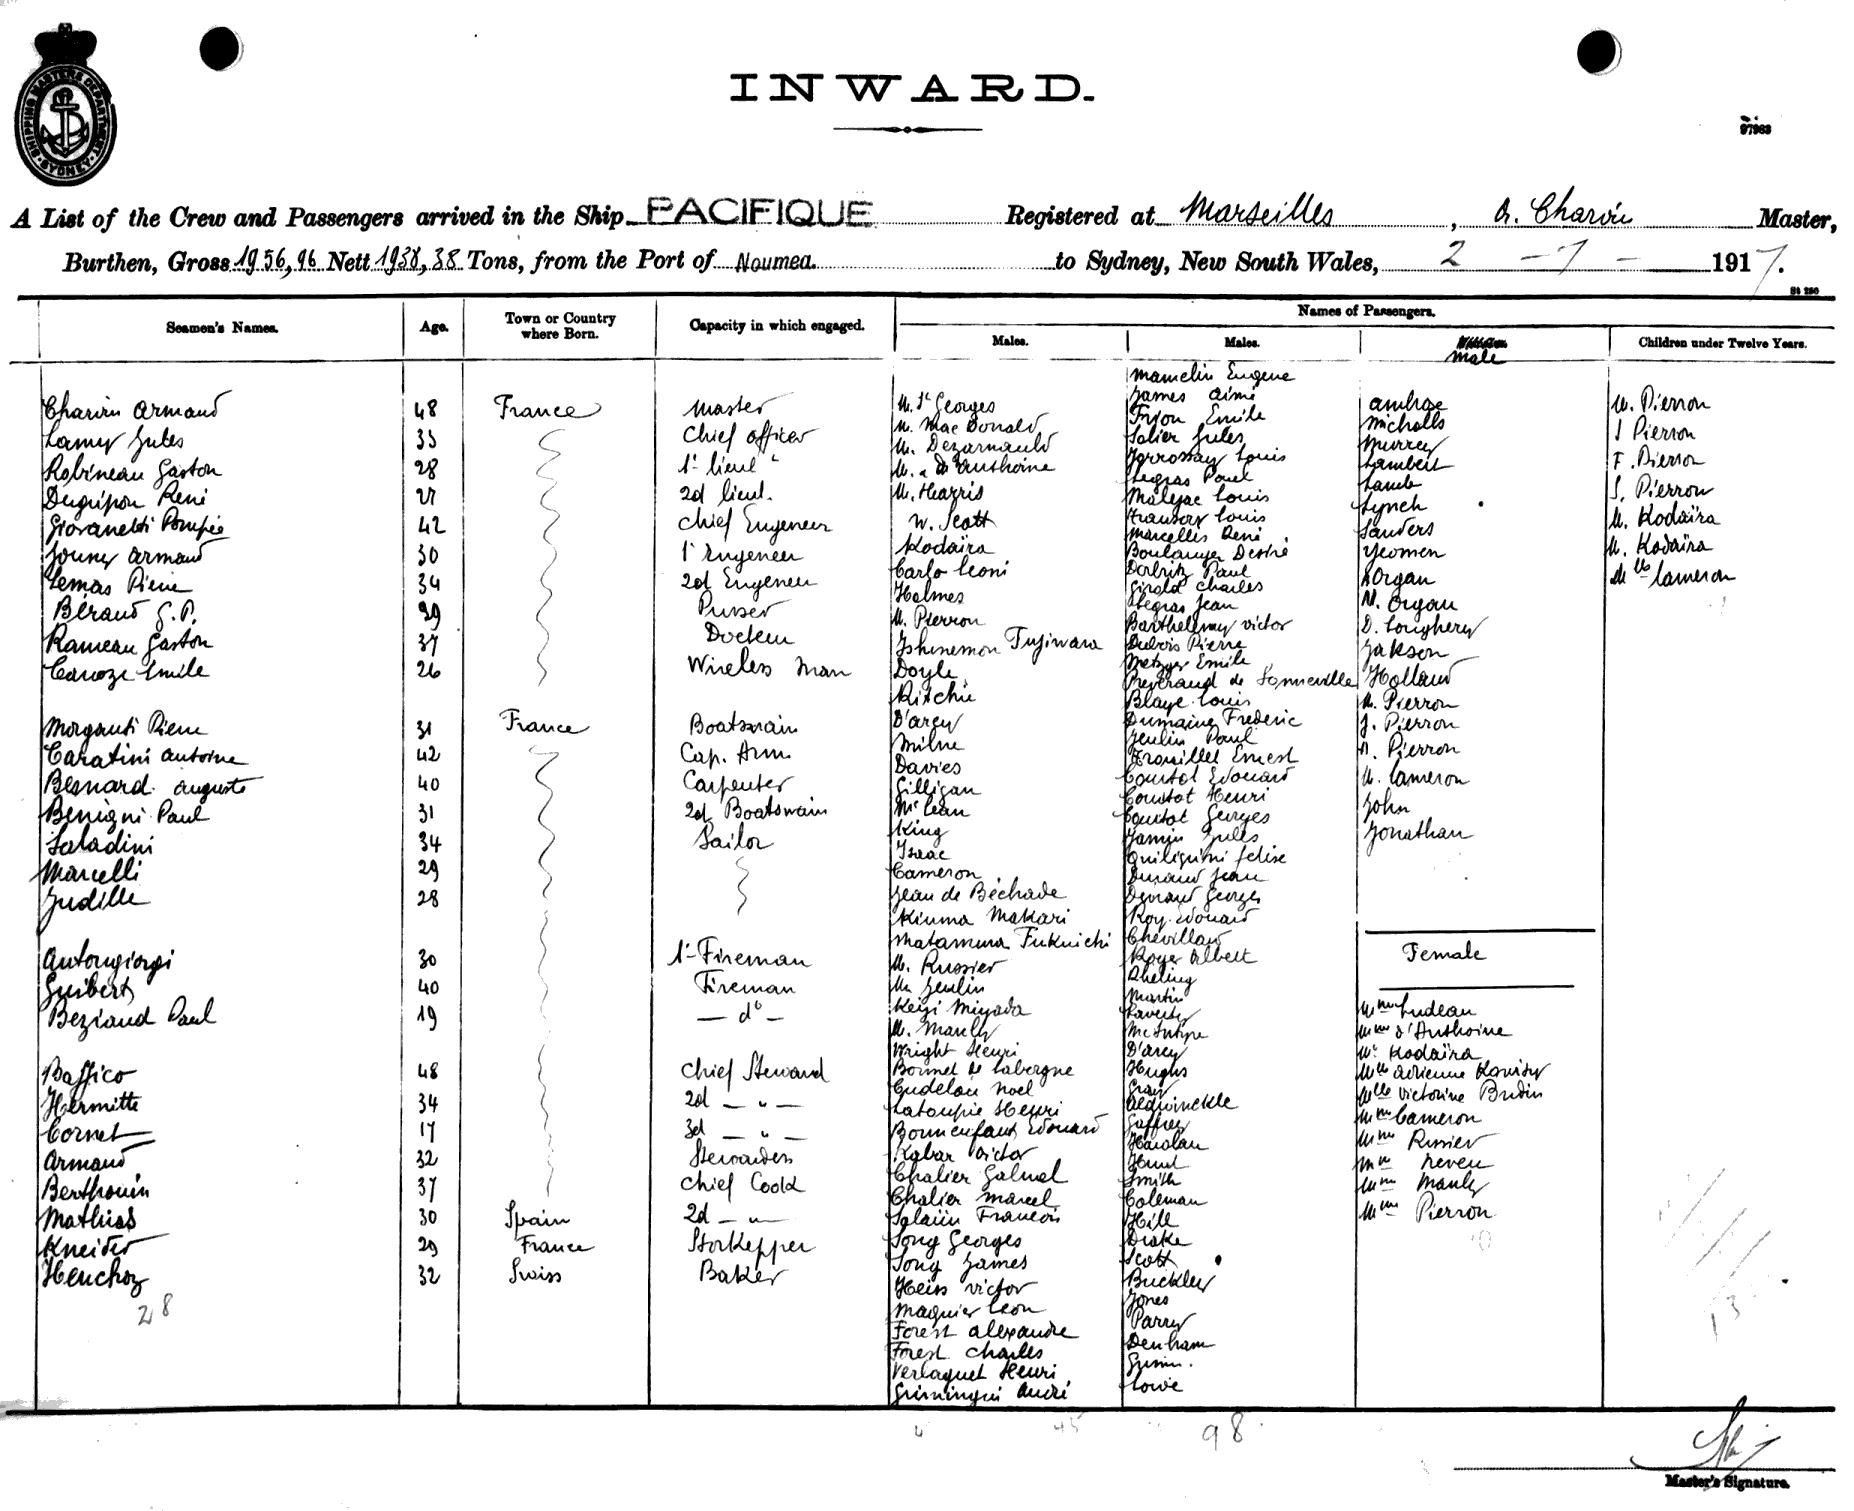 SHIPPING MASTERS DEPARTMENT. SYDNEY
INWARD.
97963
A List of the Crew and Passengers arrived in the Ship PACIFIQUE Registered at Marseilles, A. Charvin Master,
Burthen, Gross 1956,96 Nett 1938,38 Tons, from the Port of Noumea to Sydney, New South Wales, 2 - 7 - 1917.
St 250
Seamen's Names. Age. Town or Country where Born. Capacity in which engaged. Names of Passengers.
Males. Males. Male Children under Twelve Years.
Charvin Armand 48 France Master
Lamy Jules 33 Chief Officer
Robineau Gaston 28 1r lieut
Duguipon René 27 2d lieut.
Giovanetti Pompée 42 Chief Engeneer
Jouny Armand 30 1r Engeneer
Lemas Pierre 34 2d Engeneer
Béraud G.P. 39 Purser
Rameau Gaston 37 Docteur
Canoze Emile 26 Wireless man
Morganti Pierre 31 France Boatswain
Caratini Antoine 42 Cap. Arm
Besnard Auguste 40 Carpenter
Benigni Paul 31 2d Boatswain
Saladini 34 Sailor
Marcelli 29
Judille 28
Antongiorgi 30 1r Fireman
Guibert 40 Fireman
Beziaud Paul 19 — do —
Baffico 48 Chief Steward
Hermitte 34 2d — " —
Cornet 17 3d — " —
Armand 32 Stewardess
Berthouin 37 Chief Cook
Mathias 30 Spain 2d — " —
Kneider 29 France Storkepper
Henchoz 32 Swiss Baker
28
M. St Georges
M. Mac Donald
M. Dezarnauld
M. d'Anthoine
M. Harris
W. Scott
Kodaïra
Carlo Leoni
Holmes
M. Pierron
Ishinemon Fujiwara
Doyle
Ritchie
D'arcy
Milne
Davies
Gilligan
Mc Lean
King
Isaac
Cameron
Jean de Béchade
Kinma Makari
Matamura Fukuichi
M. Russier
M. Jeulin
Keiji Miyada
M. Manly
Wright Henri
Bonnet de Labergne
Gudelou Noel
Latoupie Henri
Bonnenfant Edouard
Kabar Victor
Chalier Galmel
Chalier Marcel
Salaün Francois
Song Georges
Song James
Heiss Victor
Maguier Leon
Forest Alexandre
Forest Charles
Verlaguet Henri
Guimingui André
Mamelin Eugene
James Aimé
Frion Emile
Salier Jules
Jorrossay Louis
Legras Paul
Malejac Louis
Louis
Marcelles René
Boulanger Desiré
Dorbritz Paul
Girold Charles
Legras Jean
Barthelemy Victor
Dubois Pierre
Metzger Emile
Reveraud de Sonneville
Blaye Louis
Dumaine Frederic
Jeulin Paul
Trouillet Ernest
Courtot Edouard
Courtot Henri
Courtot Georges
Jamin Jules
Quilichini Felise
Durand Jean
Georges
Roy Edouard
Chevillard
Royer Albert
Aheling
Martin
Laverty
McIntyre
D'arcy
Hughs
Gray
Aldwinckle
Gaffrey
Hanlan
Hunt
Smith
Coleman
Hill
Drake
Scott
Buckley
Jones
Parry
Denham
Gunn.
Lowe
Ambroe
Nicholls
Murray
Lambert
Lamb
Lynch
Sanders
Yeomen
L. Organ
N. Organ
D. Loughery
Jakson
Holland
M. Pierron
J. Pierron
A. Pierron
M. Cameron
John
Jonathan
Female
Mme Ludeau
Mme d'Anthoine
Me Kodaïra
Mlle Adrienne Kavisy
Mlle Victorine Budin
Mme Cameron
Mme Russier
Mme Neveu
Mme Manly
Mme Pierron
10
M. Pierron
J Pierron
F. Pierron
S. Pierron
M. Kodaïra
M. Kodaïra
Mlle Cameron
13
45
98
Master's Signature.